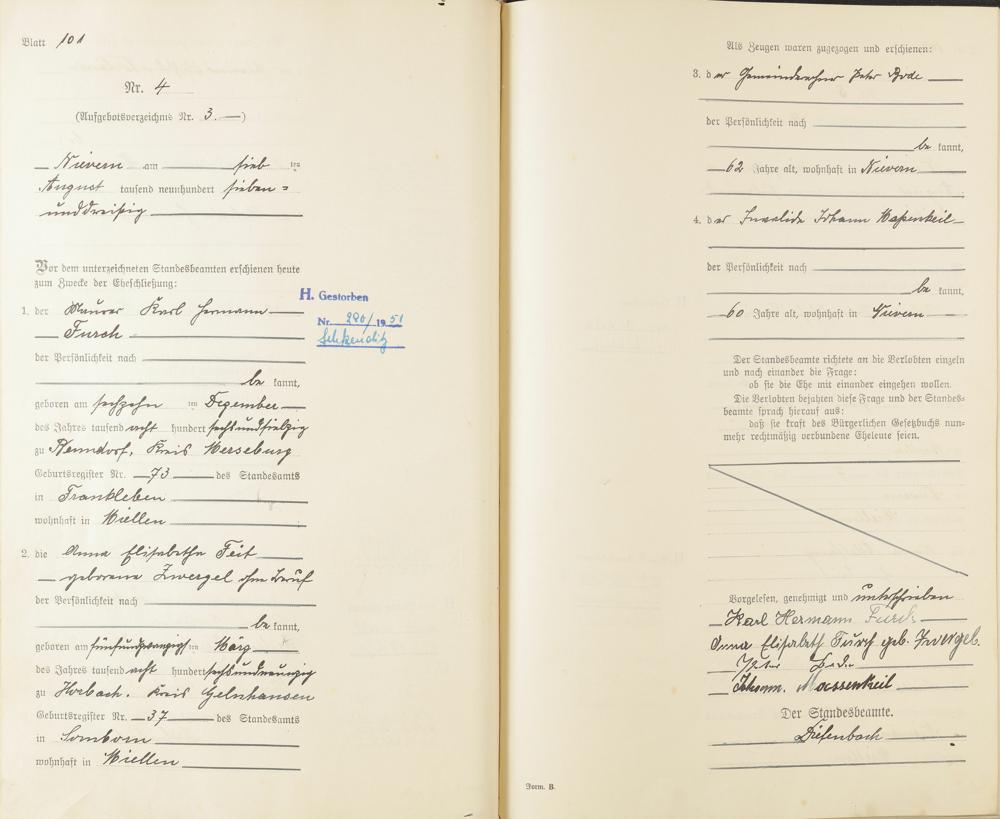 Blatt 101
Nr. 4
(Aufgebotsverzeichnis Nr. 3.)
Nievern am sieb ten
August tausend neunhundert sieben=
unddreißig
Vor dem unterzeichneten Standesbeamten erschienen heute
zum Zwecke der Eheschließung:
1. der Maurer Karl Hermann
Fursch
der Persönlichkeit nach
be kannt,
geboren am sechzehn ten Dezember
des Jahres tausend acht hundert sechsundsiebzig
zu Benndorf, Kreis Merseburg
Geburtsregister Nr. 73 des Standesamts
in Frankleben
wohnhaft in Miellen
2. die Anna Elisabetha Feit
geborene Zwergel ohne Beruf
der Persönlichkeit nach
be kannt,
geboren am fünfundzwanzigs ten März
des Jahres tausend acht hundert sechsundneunzig
zu Horbach, Kreis Gelnhausen
Geburtsregister Nr. 37 des Standesamts
in Somborn
wohnhaft in Miellen
H. Gestorben
Nr. 290/1951
Schkeuditz
Als Zeugen waren zugezogen und erschienen:
3. d er Gemeinderechner Peter Bode
der Persönlichkeit nach
be kannt,
62 Jahre alt, wohnhaft in Nievern
4. d er Invalide Johann Maßenkeil
der Persönlichkeit nach
be kannt,
60 Jahre alt, wohnhaft in Nievern
Der Standesbeamte richtete an die Verlobten einzeln
und nach einander die Frage:
ob sie die Ehe mit einander eingehen wollen.
Die Verlobten bejahten diese Frage und der Standes-
beamte sprach hierauf aus:
daß sie kraft des Bürgerlichen Gesetzbuchs nun-
mehr rechtmäßig verbundene Eheleute seien.
Vorgelesen, genehmigt und unterschrieben
Karl Hermann Fursch
Anna Elisabeth Fursch geb. Zwergel.
Peter Bode
Johann. Massenkeil
Der Standesbeamte.
Diefenbach
Form. B.